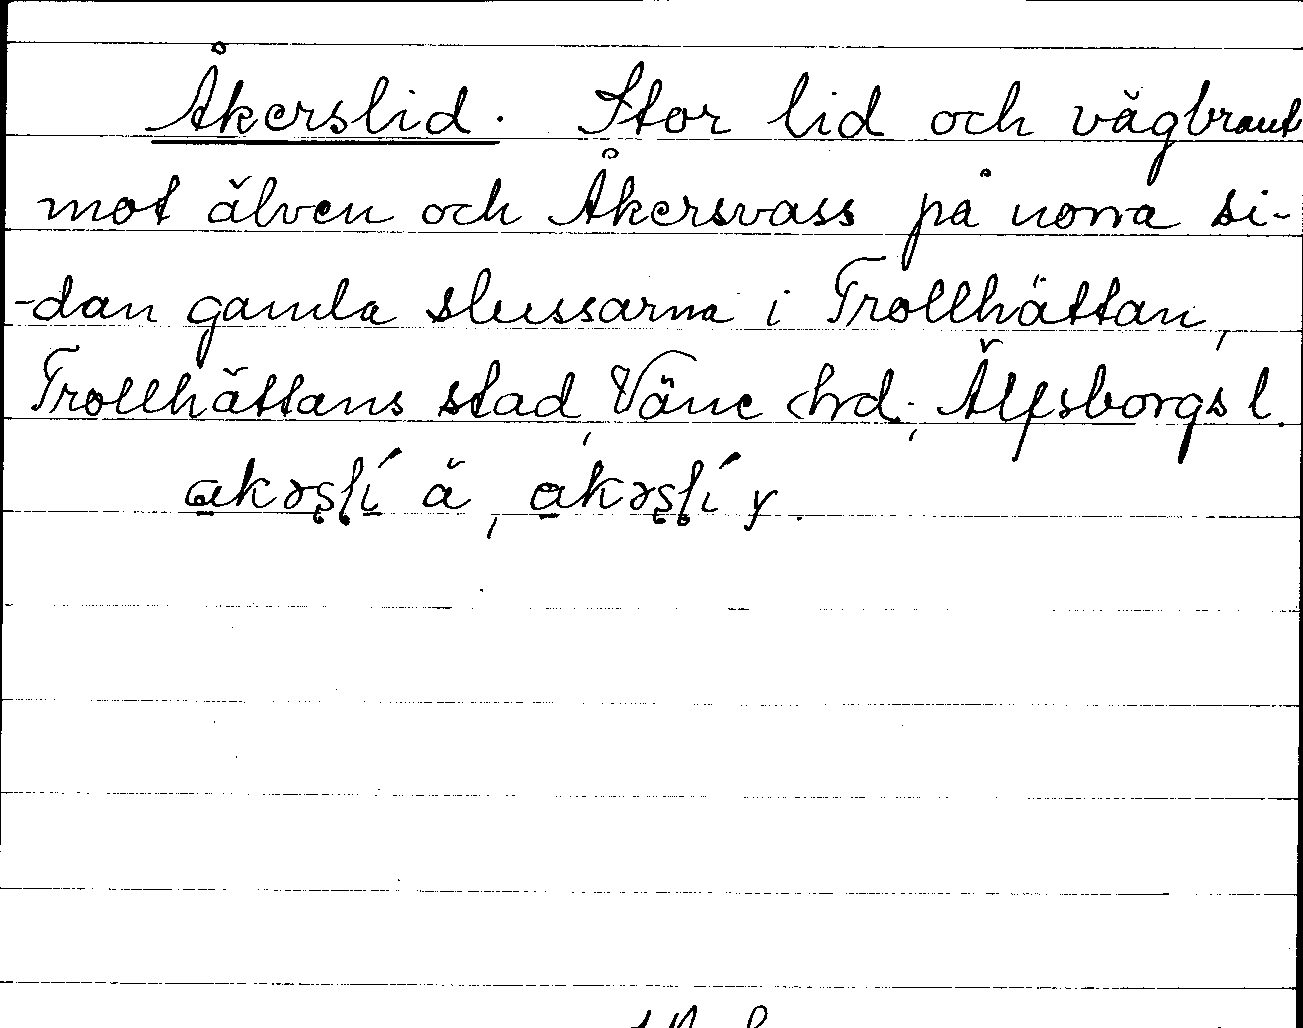 Åkerslid. Stor lid och vägbrant
mot älven och Åkersvass på norra si-
-dan gamla slussarna i Trollhättan,
Trollhättans stad, Väne hrd; Älfsborgs l.
ɑkəʂɭí ä, ɑkəʂɭí y.